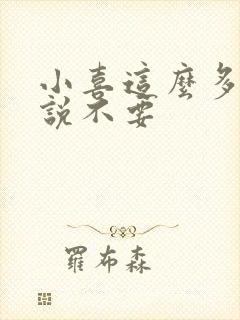 小喜這麼多
說不要
羅布森